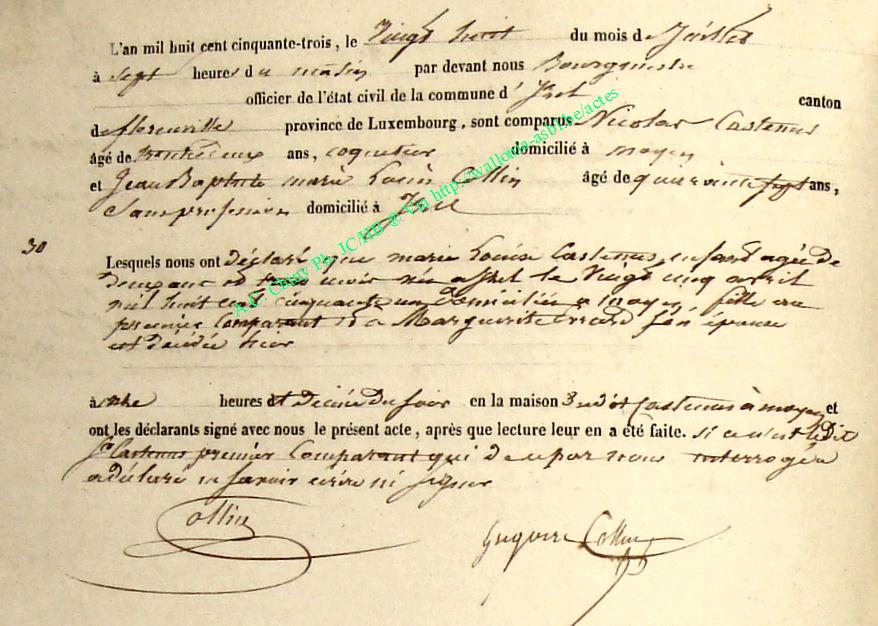 L'an mil huit cent cinquante-trois, le Vingt huit du mois de Juillet
à sept heures du matin par devant nous Bourgmestre
officier de l'état civil de la commune d'Izel canton
de florenville province de Luxembourg, sont comparus Nicolas Castenus
âgé de trente deux ans, coquetier domicilié à moyen
et Jean Baptiste marie Louis Collin âgé de quarante sept ans,
Sans profession domicilié à Izel
30
Lesquels nous ont déclaré que marie Louise Castenus, enfant agée de
deux ans et trois mois née a Izel le Vingt cinq avril
mil huit cent cinquante un domiciliée a moyen, fille au
premier Comparant et a Marguerite Errard son épouse
est décédée hier
à onze heures et demie du soir en la maison dudit Castenus à moyen et
ont les déclarants signé avec nous le présent acte, après que lecture leur en a été faite. si ce n'est ledit
Castenus premier Comparant qui de par nous interrogé a
a déclaré ne savoir écrire ni signer
Collin
Grégoire Collin
A.E. Cinay Ph. JC/HB ® Via http://wallonia-asbl.be/actes